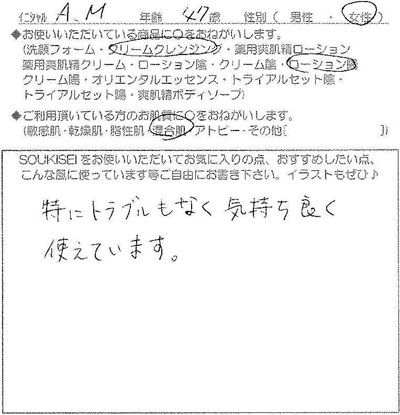 イニシャル A、M 年齢 47歳 性別（ 男性 ・ 女性 ）
◆お使いいただいている商品に○をおねがいします。
（洗顔フォーム・クリームクレンジング・薬用爽肌精ローション
薬用爽肌精クリーム・ローション陰・クリーム陰・ローション陽
クリーム陽・オリエンタルエッセンス・トライアルセット陰・
トライアルセット陽・爽肌精ボディソープ）
◆ご利用頂いている方のお肌質に○をおねがいします。
（敏感肌・乾燥肌・脂性肌・混合肌・アトピー・その他[ ]）
SOUKISEIをお使いいただいてお気に入りの点、おすすめしたい点、
こんな風に使っています等ご自由にお書き下さい。イラストもぜひ♪
特にトラブルもなく気持ち良く
使えています。